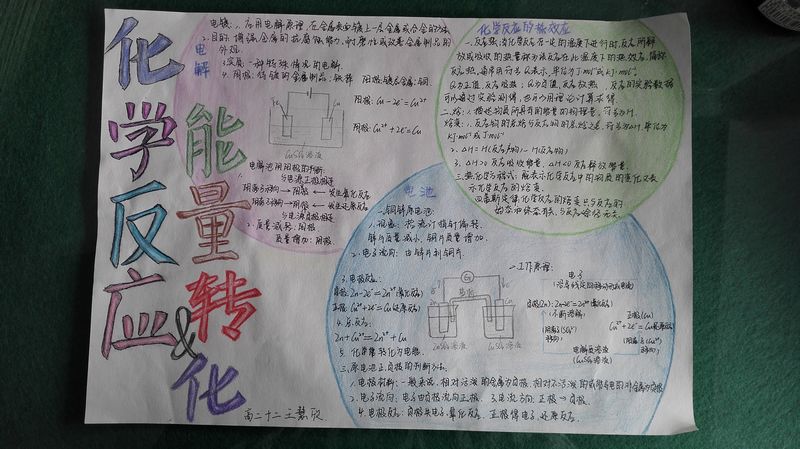 化学反应
&
能量转化
电解
电镀:1.应用电解原理,在金属表面镀上一层金属或合金的方法
2.目的:增强金属的抗腐蚀能力,耐磨性或改善金属制品的
外观.
3.实质:一种特殊情况的电解.
4.阴极:待镀的金属制品:铁棒 阳极:镀层金属:铜.
阳极:Cu-2e⁻=Cu²⁺
阴极:Cu²⁺+2e⁻=Cu
CuSO₄溶液
电解池阴阳极的判断:
1.
与电源正极相连
阴离子移向→阳极←发生氧化反应
阳离子移向→阴极←发生还原反应
与电源负极相连
2.质量减轻:阳极.
质量增加:阴极.
化学反应的热效应
一.反应热:当化学反应在一定的温度下进行时,反应所释
放或吸收的热量称为该反应在此温度下的热效应,简称
反应热,通常用符号Q表示,单位为J·mol⁻¹或kJ·mol⁻¹.
Q为正值,反应吸热;Q为负值,反应放热.反应热实验数据
可以通过实验测得,也可以用理论计算求得.
二.焓:1.描述物质所具有的能量的物理量,符号为H.
焓变:1.反应物的总焓与反应物的总焓之差,符号为△H,单位为
kJ·mol⁻¹或J·mol⁻¹
2.△H=H(反应产物)-H(反应物)
3.△H>0 反应吸收能量,△H<0 反应释放能量.
三.热化学方程式:能表示化学反应中的物质的变化又表
示化学反应的焓变.
四.盖斯定律:化学反应的焓变只与反应的
始态和终态有关,与反应途径无关.
电池
一.铜锌原电池:
1.现象:检流计指针偏转.
锌片质量减小,铜片质量增加.
2.电子流向:由锌片到铜片.
3.电极反应:
负极:Zn-2e⁻=Zn²⁺(氧化反应)
正极:Cu²⁺+2e⁻=Cu(还原反应)
4.总反应:
Zn+Cu²⁺=Zn²⁺+Cu
5.化学能转化为电能.
G
盐桥
ZnSO₄溶液 CuSO₄溶液
二.工作原理:
电子
(沿导线定向移动形成电流)
负极(Zn):Zn-2e⁻=Zn²⁺(氧化反应)
(不断溶解) 正极(Cu)
Cu²⁺+2e⁻=Cu(还原反应)
(阴离子(SO₄²⁻)
移向) (阳离子(Cu²⁺)
移向)
电解质溶液
(CuSO₄溶液)
三.原电池正负极的判断方法.
1.电极材料:一般来说,相对活泼的金属为负极,相对不活泼的或能导电的非金属为正极
2.电子流向:电子由负极流向正极. 3.电流方向:正极→负极.
4.电极反应:负极失电子,氧化反应,正极得电子,还原反应.
高二十二 王慧欣